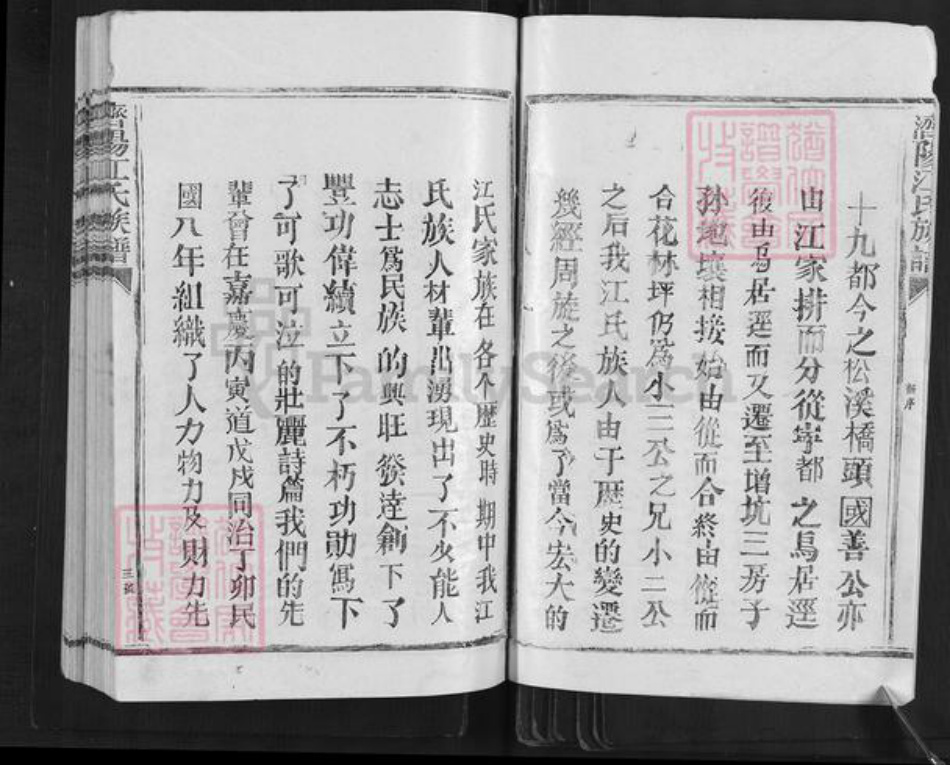 濟陽江氏族譜
新序
十九都今之松溪橋頭國善公亦
由江家排而分從寧都之烏居逕
後由烏居逕而又遷至增坑三房子
孫地壤相接始由從而合終由從而
合花林坪仍為小三公之兄小二公
之后我江氏族人由于歷史的變遷
幾經周旋之後或為了當今宏大的
江氏家族在各个歷史時期中我江
氏族人材輩出湧現出了不少能人
志士為民族的興旺發達創下了
豐功偉績立下了不朽功勛寫下
了可歌可泣的壯麗詩篇我們的先
輩曾在嘉慶丙寅道戊戌同治丁卯民
國八年組織了人力物力及財力先
濟陽江氏族譜
FamilySearch